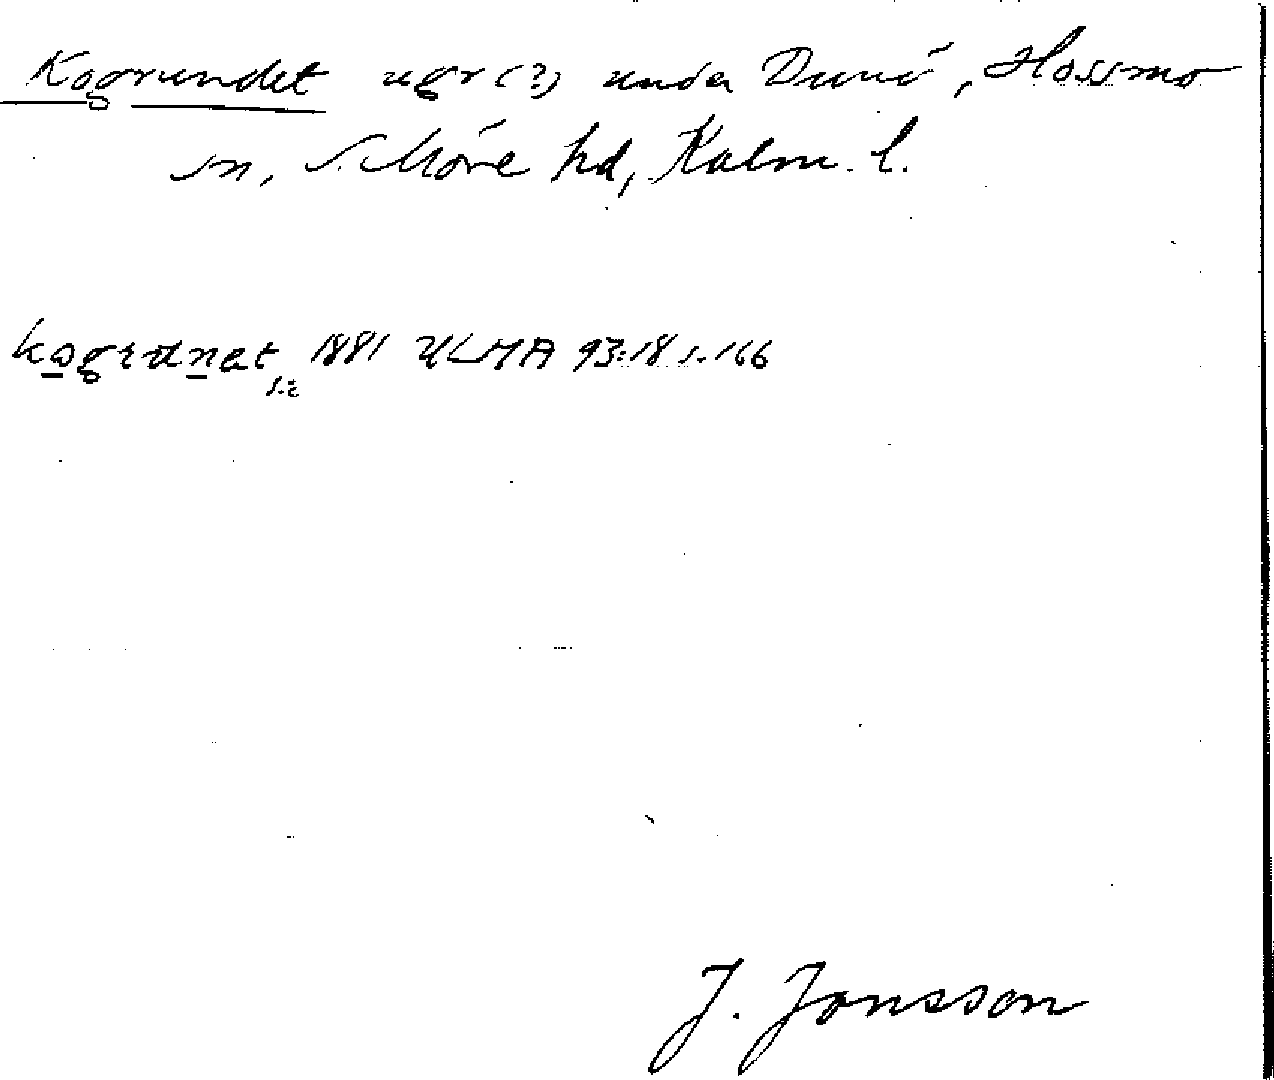 Kogrundet ugr (?) under Dunö, Hossmo
sn, S. Möre hd, Kalm. l.
kogrunet 1881 ULMA 93:18 s. 166
s.ä
J. Jonsson